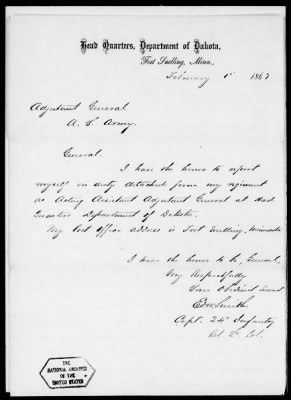 Head Quarters, Department of Dakota,
Fort Snelling, Minn.
February 1st 1867
Adjutant General
U. S. Army.
General.
I have the honor to report
myself on duty detached from my regiment
as Acting Assistant Adjutant General at Head
Quarters Department of Dakota.
My Post Office address is Fort Snelling, Minnesota
I have the honor to be, General,
Very Respectfully
Your Obedient Servant
Ed. W. Smith
Capt. 24th Infantry
Bvt. Lt. Col.
THE
NATIONAL ARCHIVES
OF THE
UNITED STATES